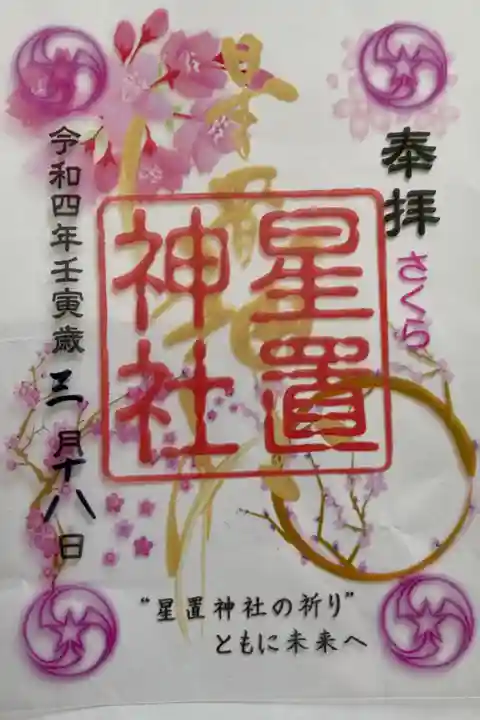 奉拝
さくら
星置
神社
令和四年壬寅歳三月十八日
“星置神社の祈り”
ともに未来へ